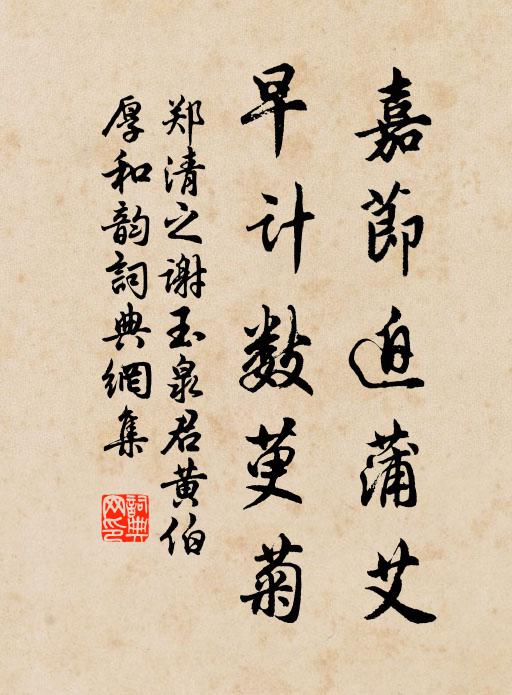 嘉節迫蒲艾
早计数萸菊
郑清之谢玉泉君黄伯
厚和韵詞典網集
詞典网印